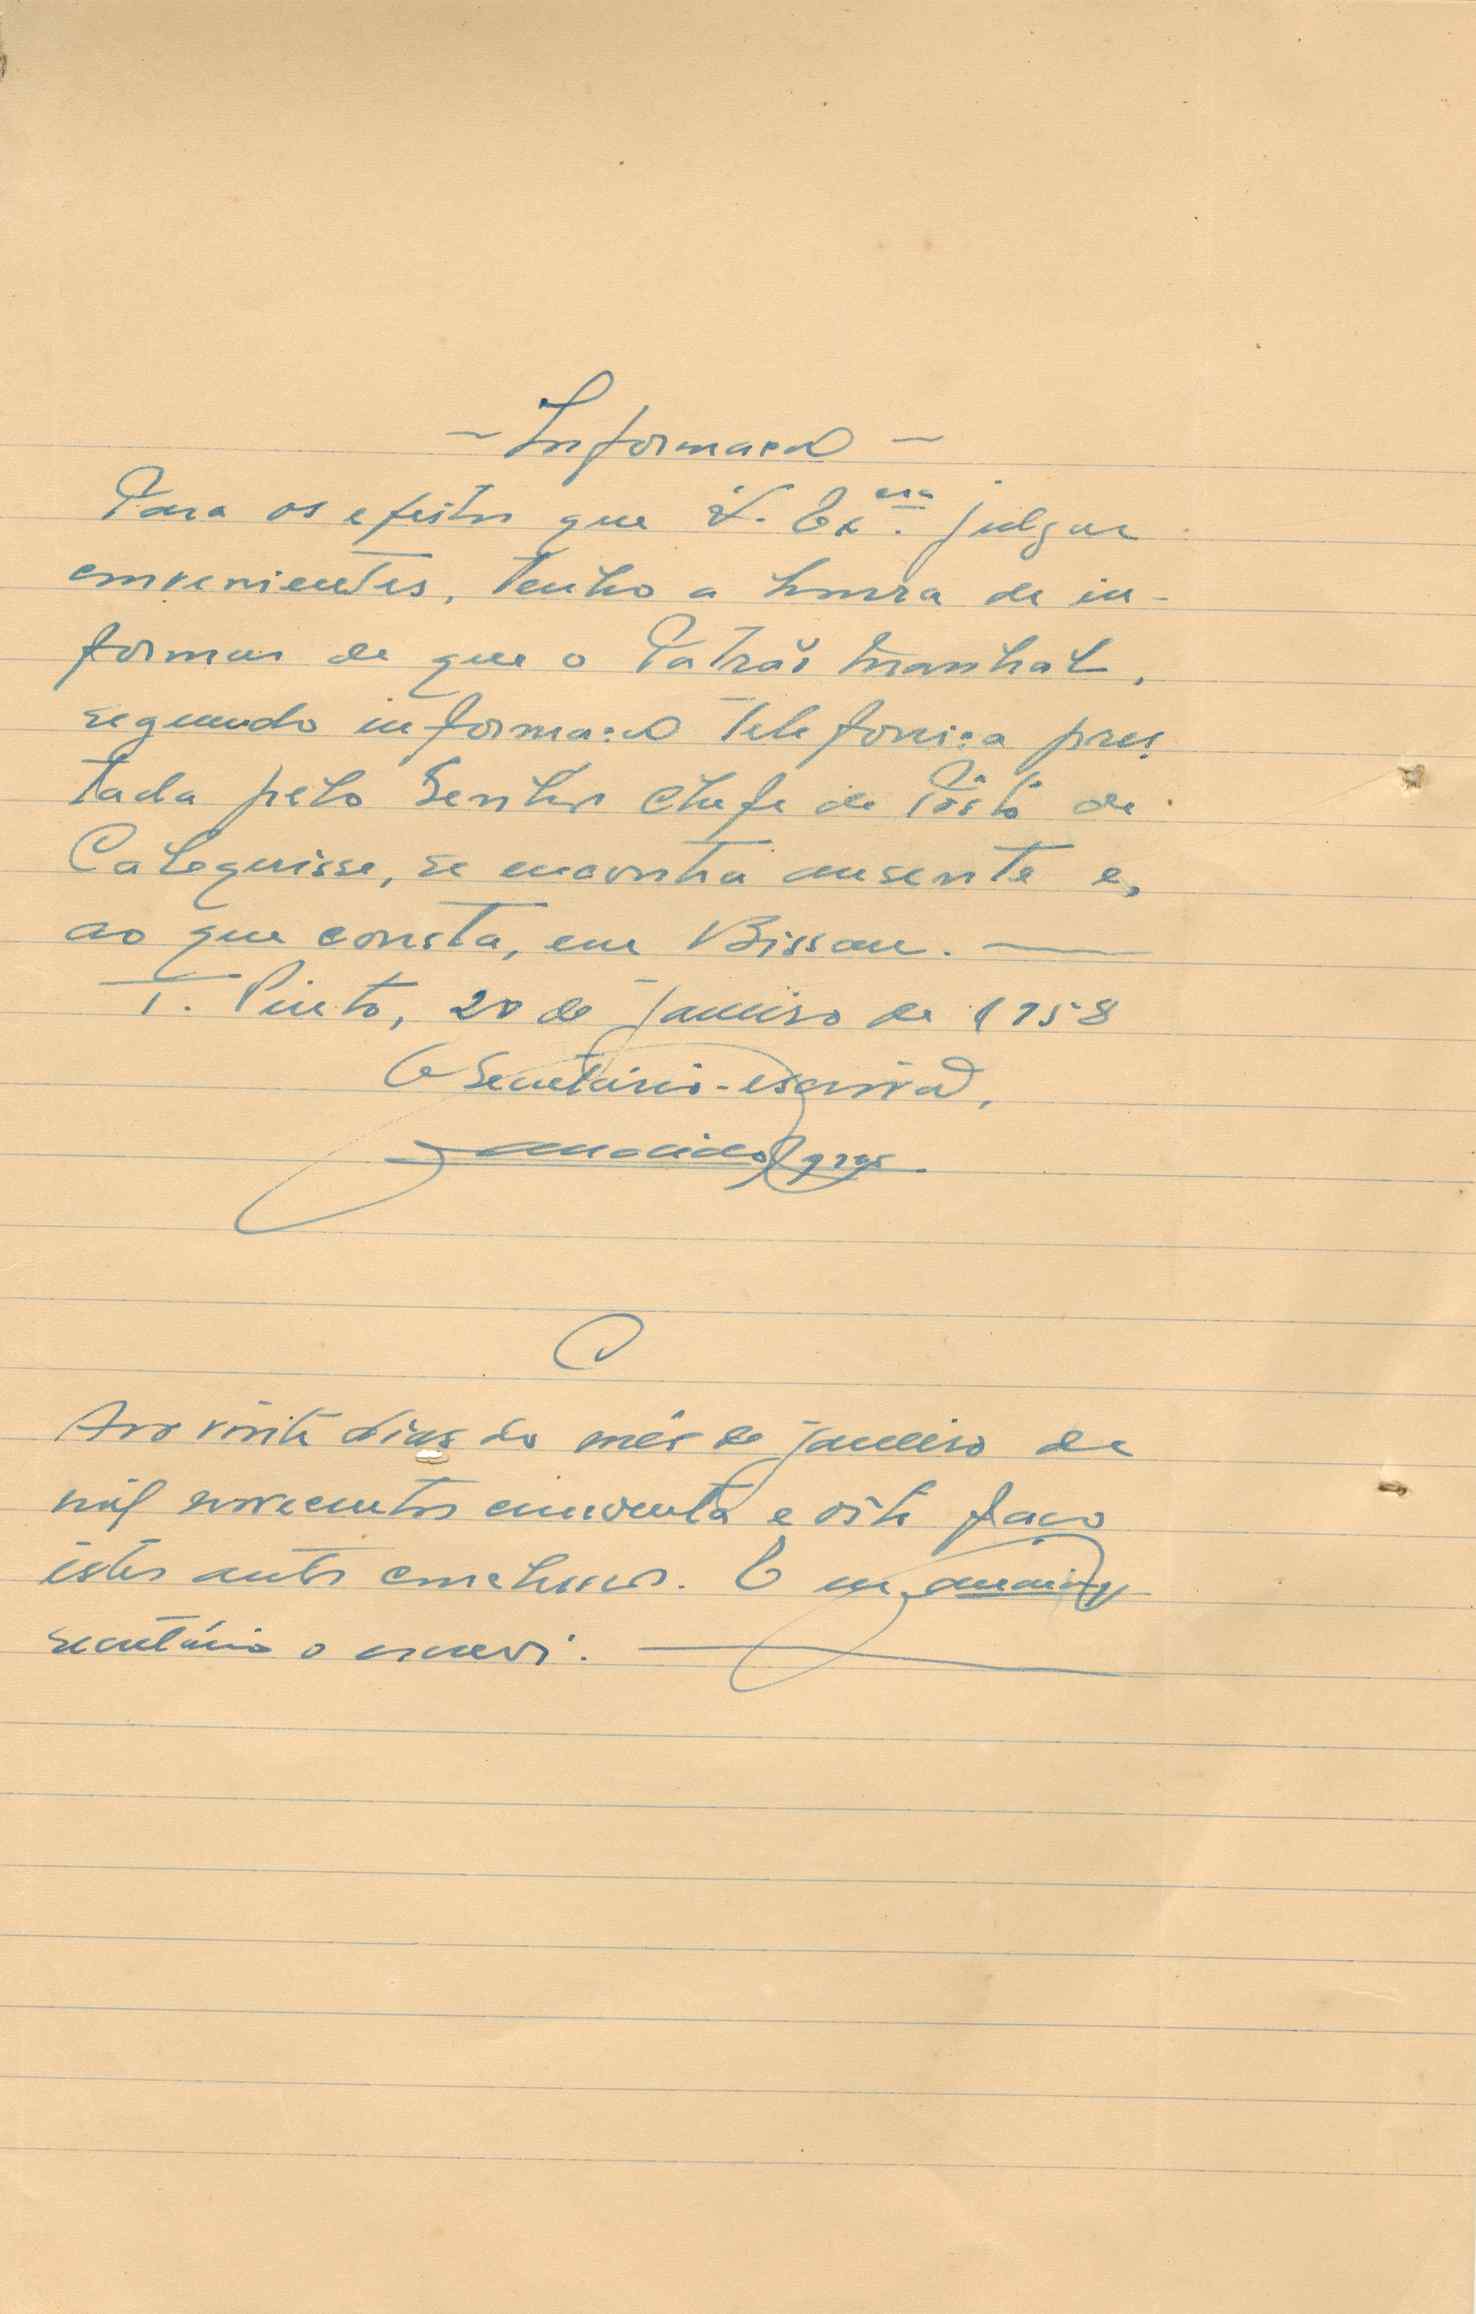 - Informação -
Para os efeitos que V. Ex.ᵐᵃ julgar
convenientes, tenho a honra de in-
formar de que o Patrão Manhal,
segundo informação telefonica pres
tada pelo Senhor Chefe de Pôsto de
Calequisse, se encontra ausente e,
ao que consta, em Bissau.
T. Pinto, 20 de Janeiro de 1958
O Secretário-escrivão,
Aos vinte dias do mês de janeiro de
mil novecentos cincoenta e oito faço
êstes autos conclusos. E eu,
secretário o escrevi.